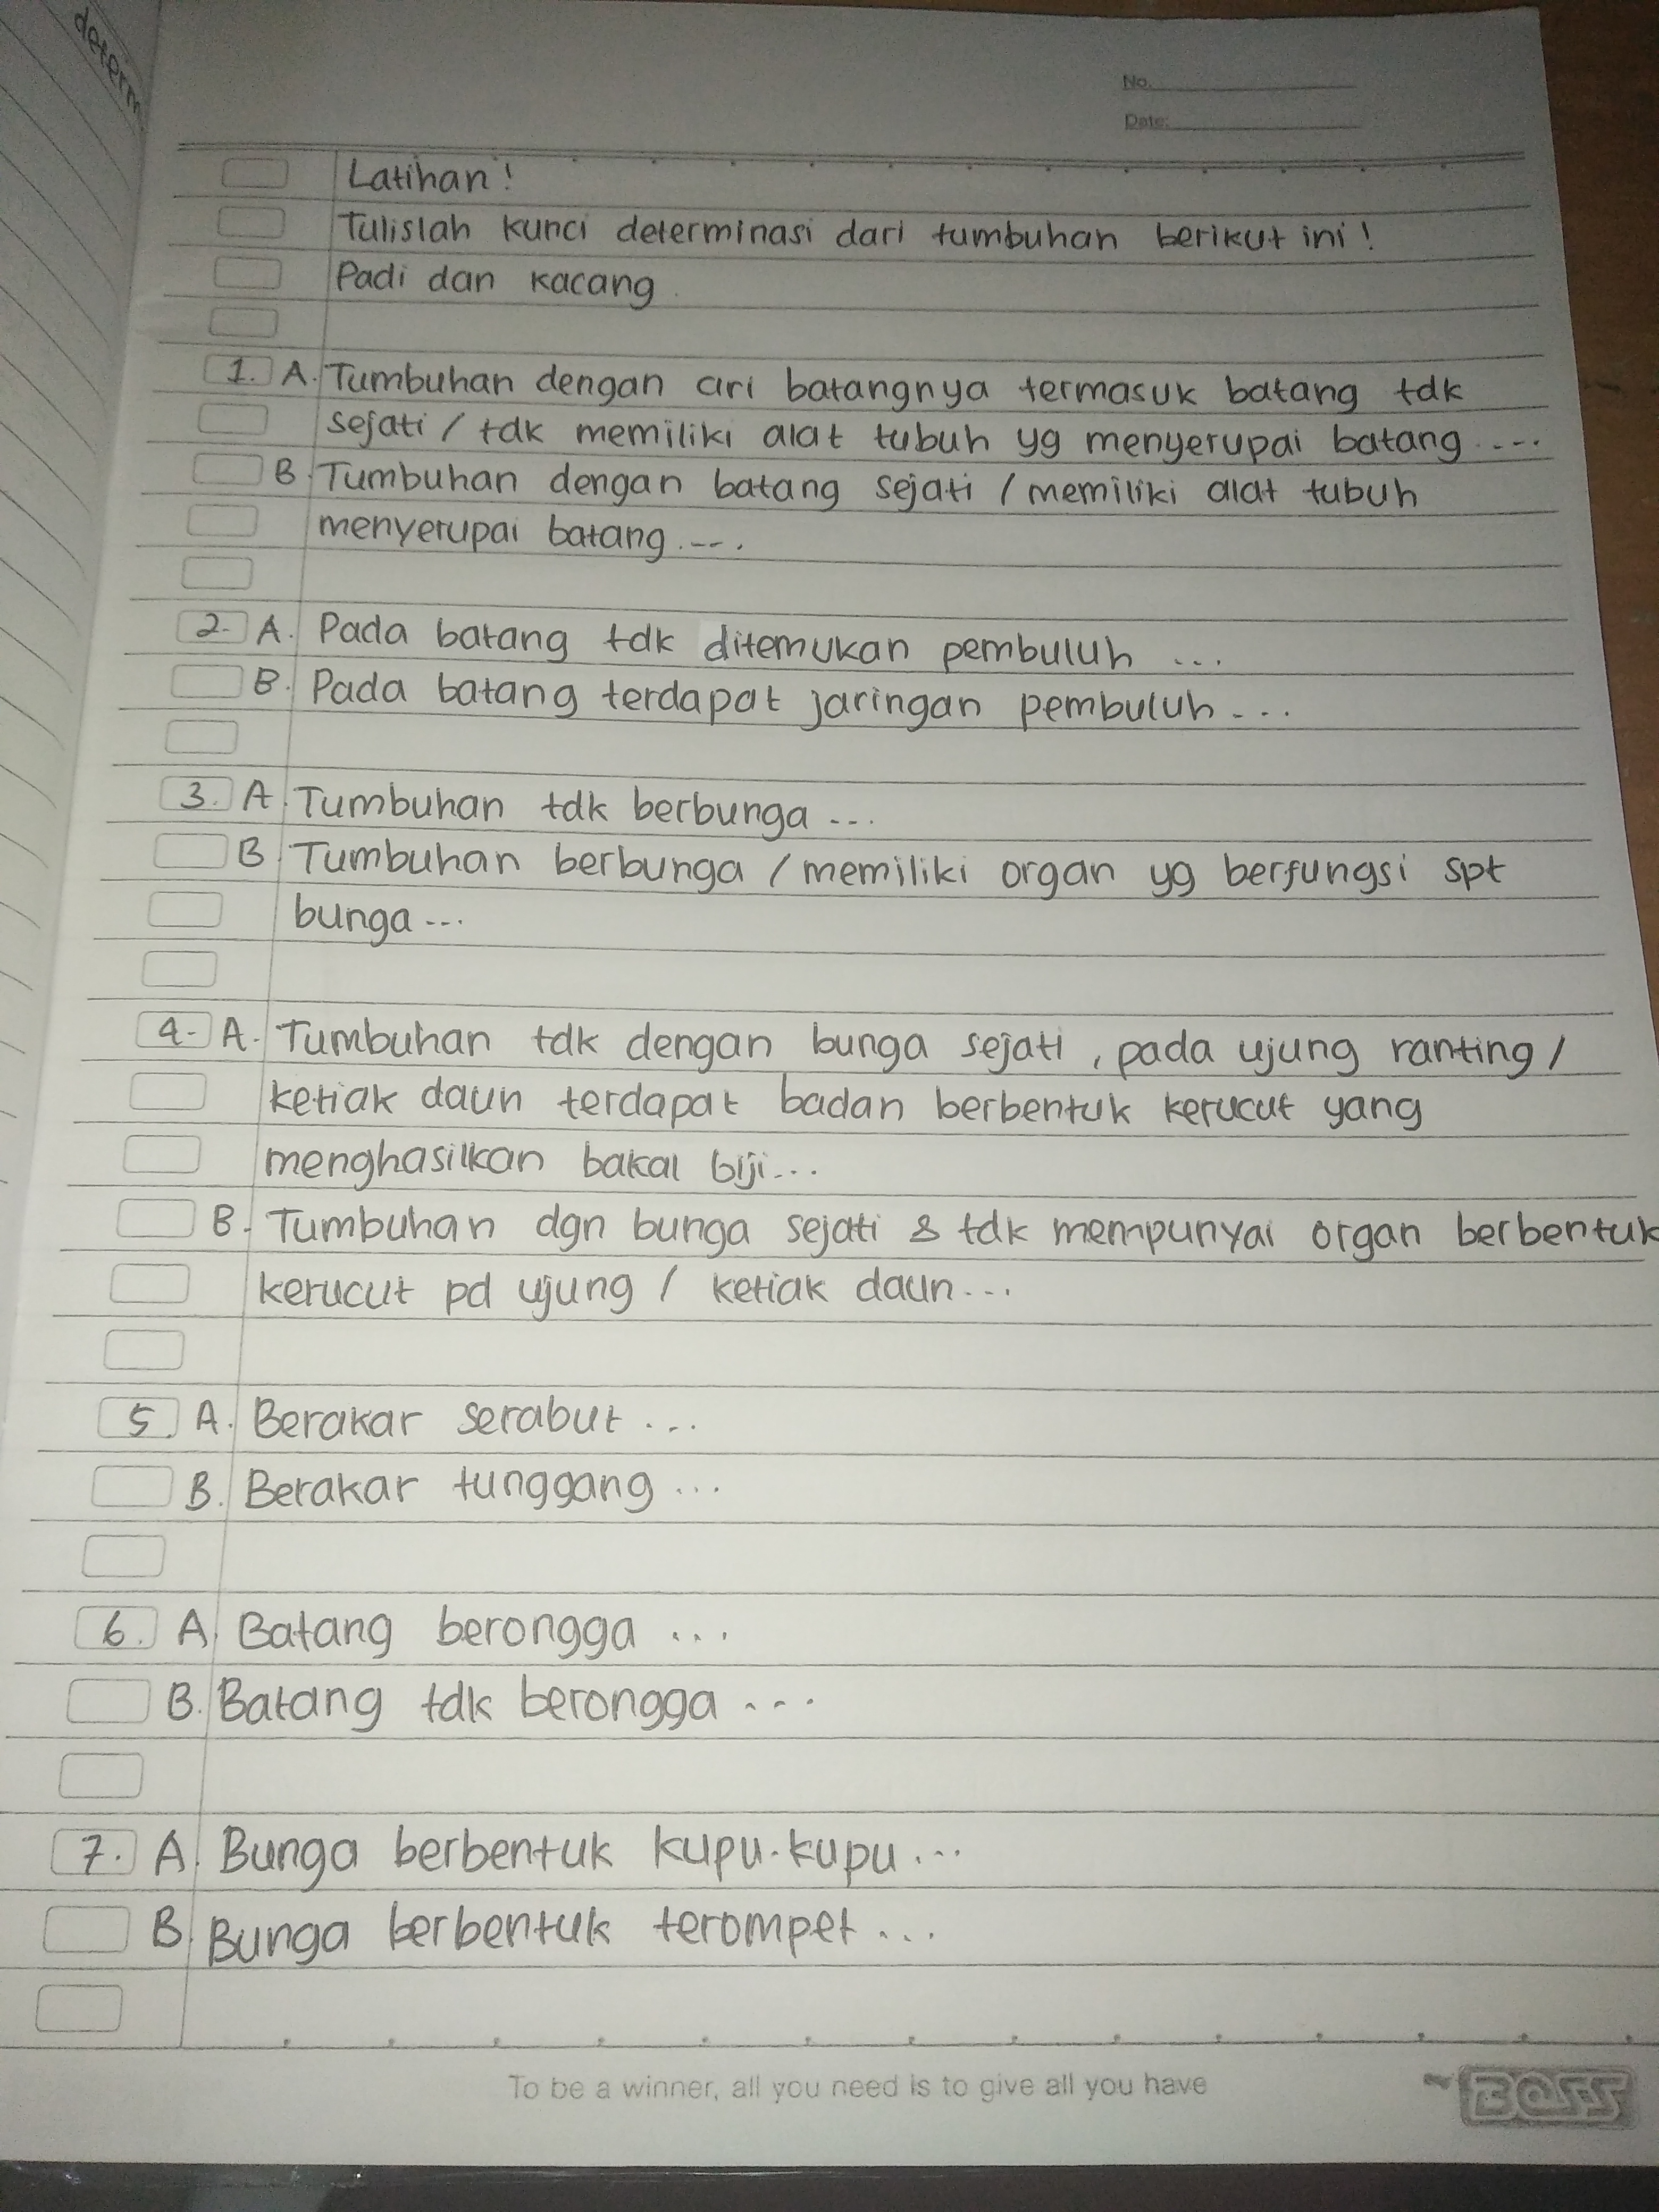 determ
No.
Date:
Latihan!
Tulislah kunci determinasi dari tumbuhan berikut ini!
Padi dan kacang
1. A. Tumbuhan dengan ari batangnya termasuk batang tdk
sejati / tdk memiliki alat tubuh yg menyerupai batang ....
B. Tumbuhan dengan batang sejati / memiliki alat tubuh
menyerupai batang ....
2. A. Pada batang tdk ditemukan pembuluh ...
B. Pada batang terdapat jaringan pembuluh ...
3. A. Tumbuhan tdk berbunga ...
B. Tumbuhan berbunga / memiliki organ yg berfungsi spt
bunga ...
4. A. Tumbuhan tdk dengan bunga sejati, pada ujung ranting /
ketiak daun terdapat badan berbentuk kerucut yang
menghasilkan bakal biji...
B. Tumbuhan dgn bunga sejati & tdk mempunyai organ berbentuk
kerucut pd ujung / ketiak daun...
5. A. Berakar serabut ...
B. Berakar tunggang ...
6. A. Batang berongga ...
B. Batang tdk berongga ...
7. A. Bunga berbentuk kupu-kupu ...
B. Bunga berbentuk terompet ...
To be a winner, all you need is to give all you have
BOSS